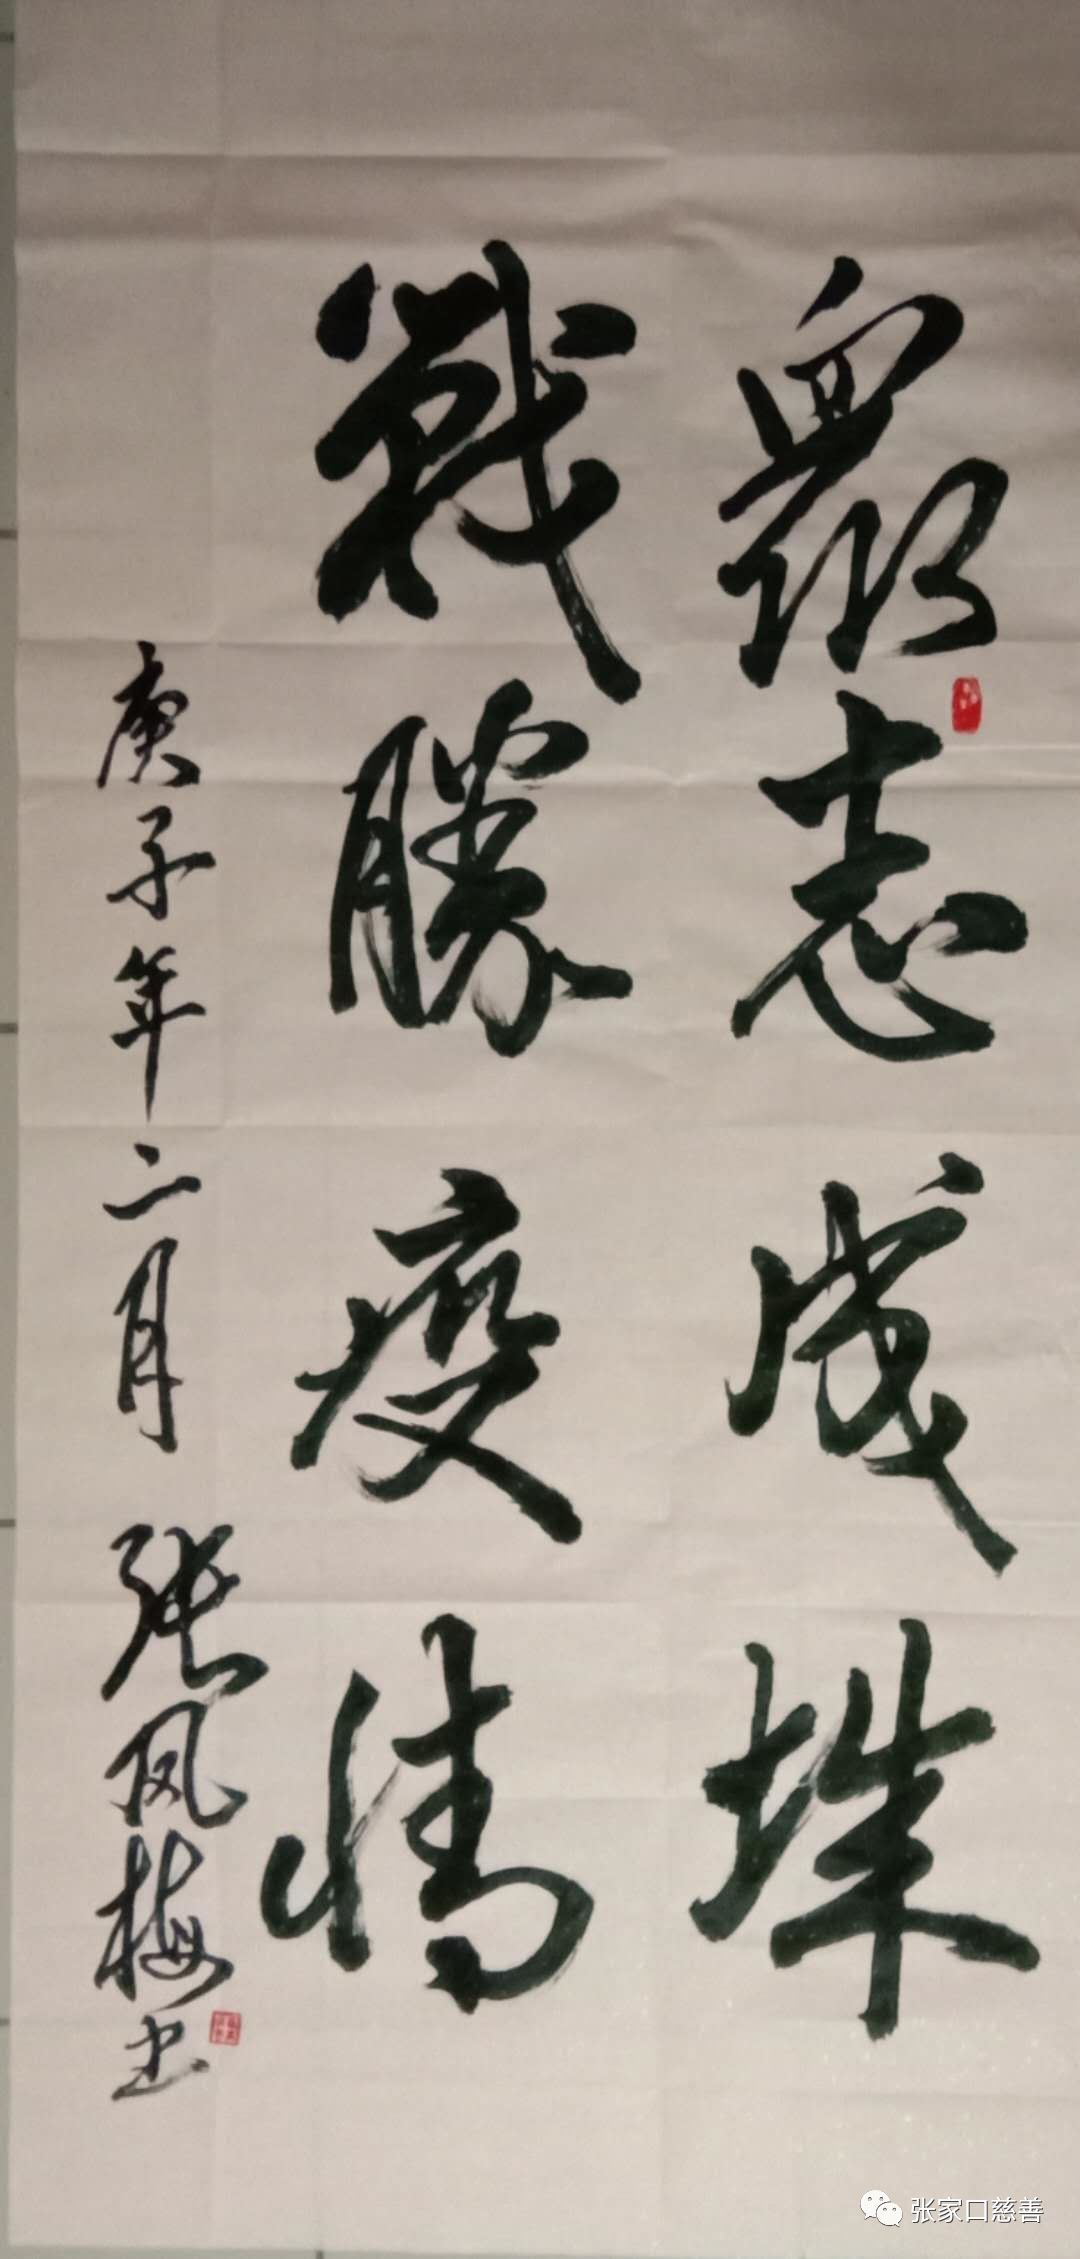 眾志成城
戰勝疫情
庚子年二月 张凤梅书
张家口慈善